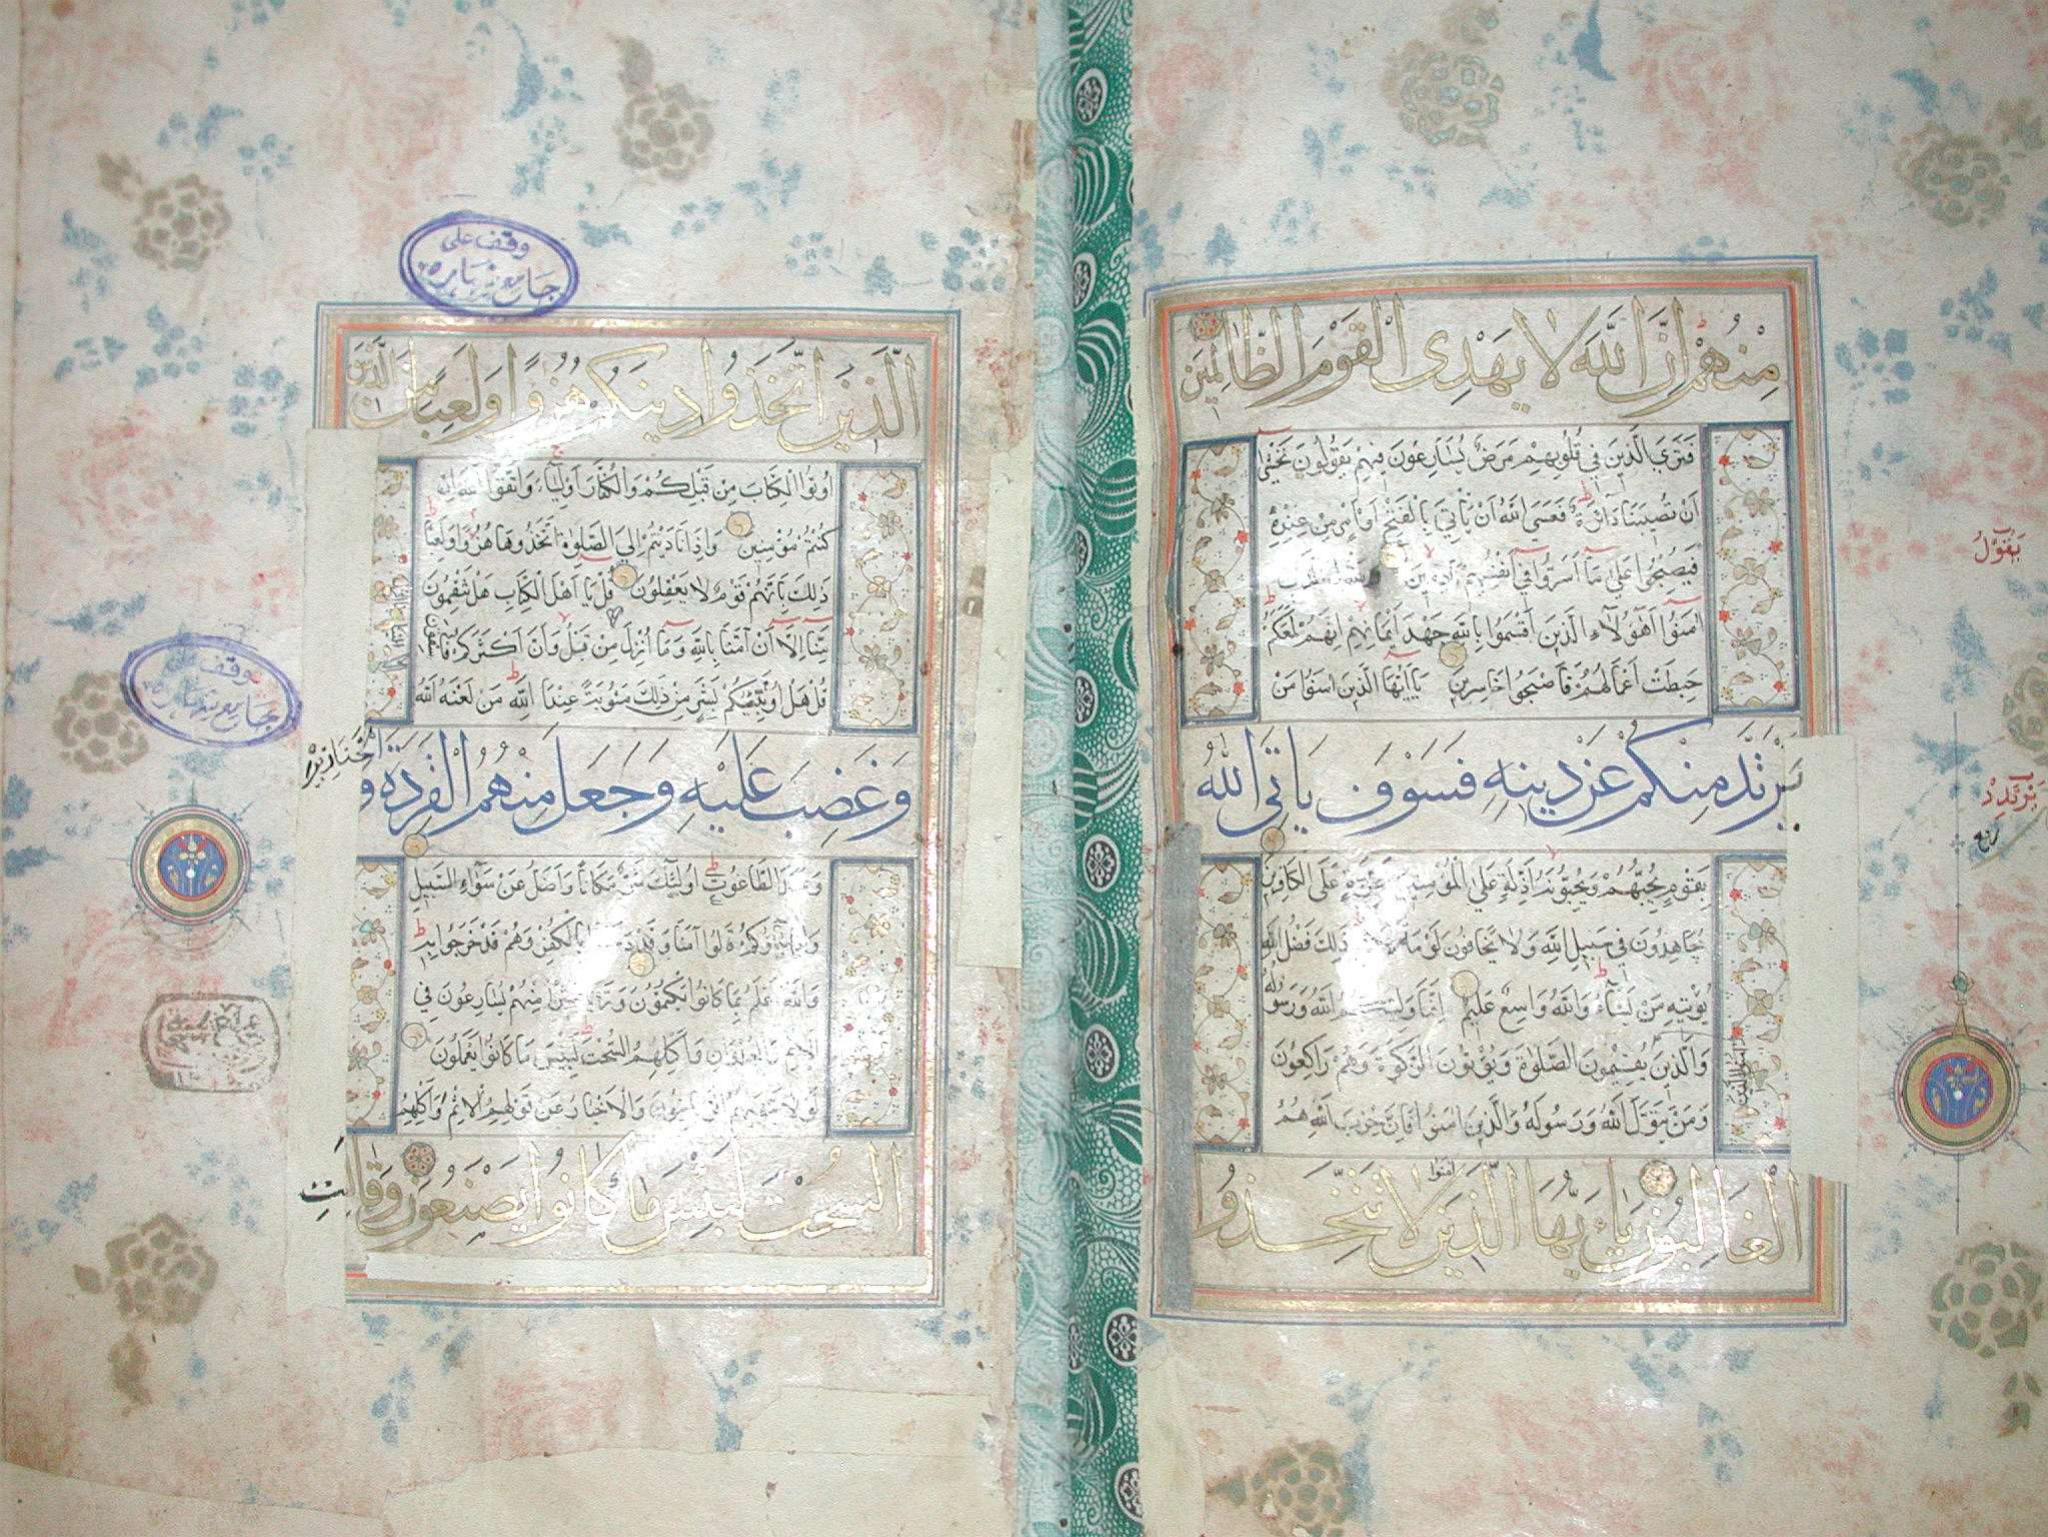 مِنْهُمْ إِنَّ اللَّهَ لَا يَهْدِي الْقَوْمَ الظَّالِمِينَ
فَتَرَى الَّذِينَ فِي قُلُوبِهِمْ مَرَضٌ يُسَارِعُونَ فِيهِمْ يَقُولُونَ نَخْشٰى
أَنْ تُصِيبَنَا دَائِرَةٌ فَعَسَى اللَّهُ أَنْ يَأْتِيَ بِالْفَتْحِ أَوْ أَمْرٍ مِنْ عِنْدِهِ
فَيُصْبِحُوا عَلٰى مَا أَسَرُّوا فِي أَنْفُسِهِمْ نَادِمِينَ
اٰمَنُوا أَهٰؤُلَاءِ الَّذِينَ أَقْسَمُوا بِاللَّهِ جَهْدَ أَيْمَانِهِمْ إِنَّهُمْ لَمَعَكُمْ
حَبِطَتْ أَعْمَالُهُمْ فَأَصْبَحُوا خَاسِرِينَ يَا أَيُّهَا الَّذِينَ اٰمَنُوا مَنْ
يَرْتَدَّ مِنْكُمْ عَنْ دِينِهِ فَسَوْفَ يَأْتِي اللَّهُ
بِقَوْمٍ يُحِبُّهُمْ وَيُحِبُّونَهُ أَذِلَّةٍ عَلَى الْمُؤْمِنِينَ أَعِزَّةٍ عَلَى الْكَافِرِينَ
يُجَاهِدُونَ فِي سَبِيلِ اللَّهِ وَلَا يَخَافُونَ لَوْمَةَ ذٰلِكَ فَضْلُ اللَّهِ
يُؤْتِيهِ مَنْ يَشَاءُ وَاللَّهُ وَاسِعٌ عَلِيمٌ إِنَّمَا وَلِيُّكُمُ اللَّهُ وَرَسُولُهُ
وَالَّذِينَ يُقِيمُونَ الصَّلٰوةَ وَيُؤْتُونَ الزَّكٰوةَ وَهُمْ رَاكِعُونَ
اٰمَنُوا الَّذِينَ
وَمَنْ يَتَوَلَّ اللَّهَ وَرَسُولَهُ وَالَّذِينَ اٰمَنُوا فَإِنَّ حِزْبَ اللَّهِ هُمُ
الْغَالِبُونَ يَا أَيُّهَا الَّذِينَ اٰمَنُوا لَا تَتَّخِذُوا
يَقُولُ
يَرْتَدِدْ
ربع
وقف على
جامع نهاره
الَّذِينَ اتَّخَذُوا دِينَكُمْ هُزُوًا وَلَعِبًا مِنَ الَّذِينَ
أُوتُوا الْكِتَابَ مِنْ قَبْلِكُمْ وَالْكُفَّارَ أَوْلِيَاءَ وَاتَّقُوا اللَّهَ إِنْ
كُنْتُمْ مُؤْمِنِينَ وَإِذَا نَادَيْتُمْ إِلَى الصَّلٰوةِ اتَّخَذُوهَا هُزُوًا وَلَعِبًا
ذٰلِكَ بِأَنَّهُمْ قَوْمٌ لَا يَعْقِلُونَ قُلْ يَا أَهْلَ الْكِتَابِ هَلْ تَنْقِمُونَ
مِنَّا إِلَّا أَنْ آمَنَّا بِاللَّهِ وَمَا أُنْزِلَ مِنْ قَبْلُ وَأَنَّ أَكْثَرَكُمْ فَاسِقُونَ
قُلْ هَلْ أُنَبِّئُكُمْ بِشَرٍّ مِنْ ذٰلِكَ مَثُوبَةً عِنْدَ اللَّهِ مَنْ لَعَنَهُ اللَّهُ
وَغَضِبَ عَلَيْهِ وَجَعَلَ مِنْهُمُ الْقِرَدَةَ وَالْخَنَازِيرَ
وَعَبَدَ الطَّاغُوتَ أُولٰئِكَ شَرٌّ مَكَانًا وَأَضَلُّ عَنْ سَوَاءِ السَّبِيلِ
وَإِذَا جَاءُوكُمْ قَالُوا آمَنَّا وَقَدْ دَخَلُوا بِالْكُفْرِ وَهُمْ قَدْ خَرَجُوا بِهِ
وَاللَّهُ أَعْلَمُ بِمَا كَانُوا يَكْتُمُونَ وَتَرٰى كَثِيرًا مِنْهُمْ يُسَارِعُونَ فِي
الْإِثْمِ وَالْعُدْوَانِ وَأَكْلِهِمُ السُّحْتَ لَبِئْسَ مَا كَانُوا يَعْمَلُونَ
لَوْلَا يَنْهٰيهُمُ الرَّبَّانِيُّونَ وَالْأَحْبَارُ عَنْ قَوْلِهِمُ الْإِثْمَ وَأَكْلِهِمُ
السُّحْتَ لَبِئْسَ مَا كَانُوا يَصْنَعُونَ وَقَالَتِ
وقف على
جامع نهاره